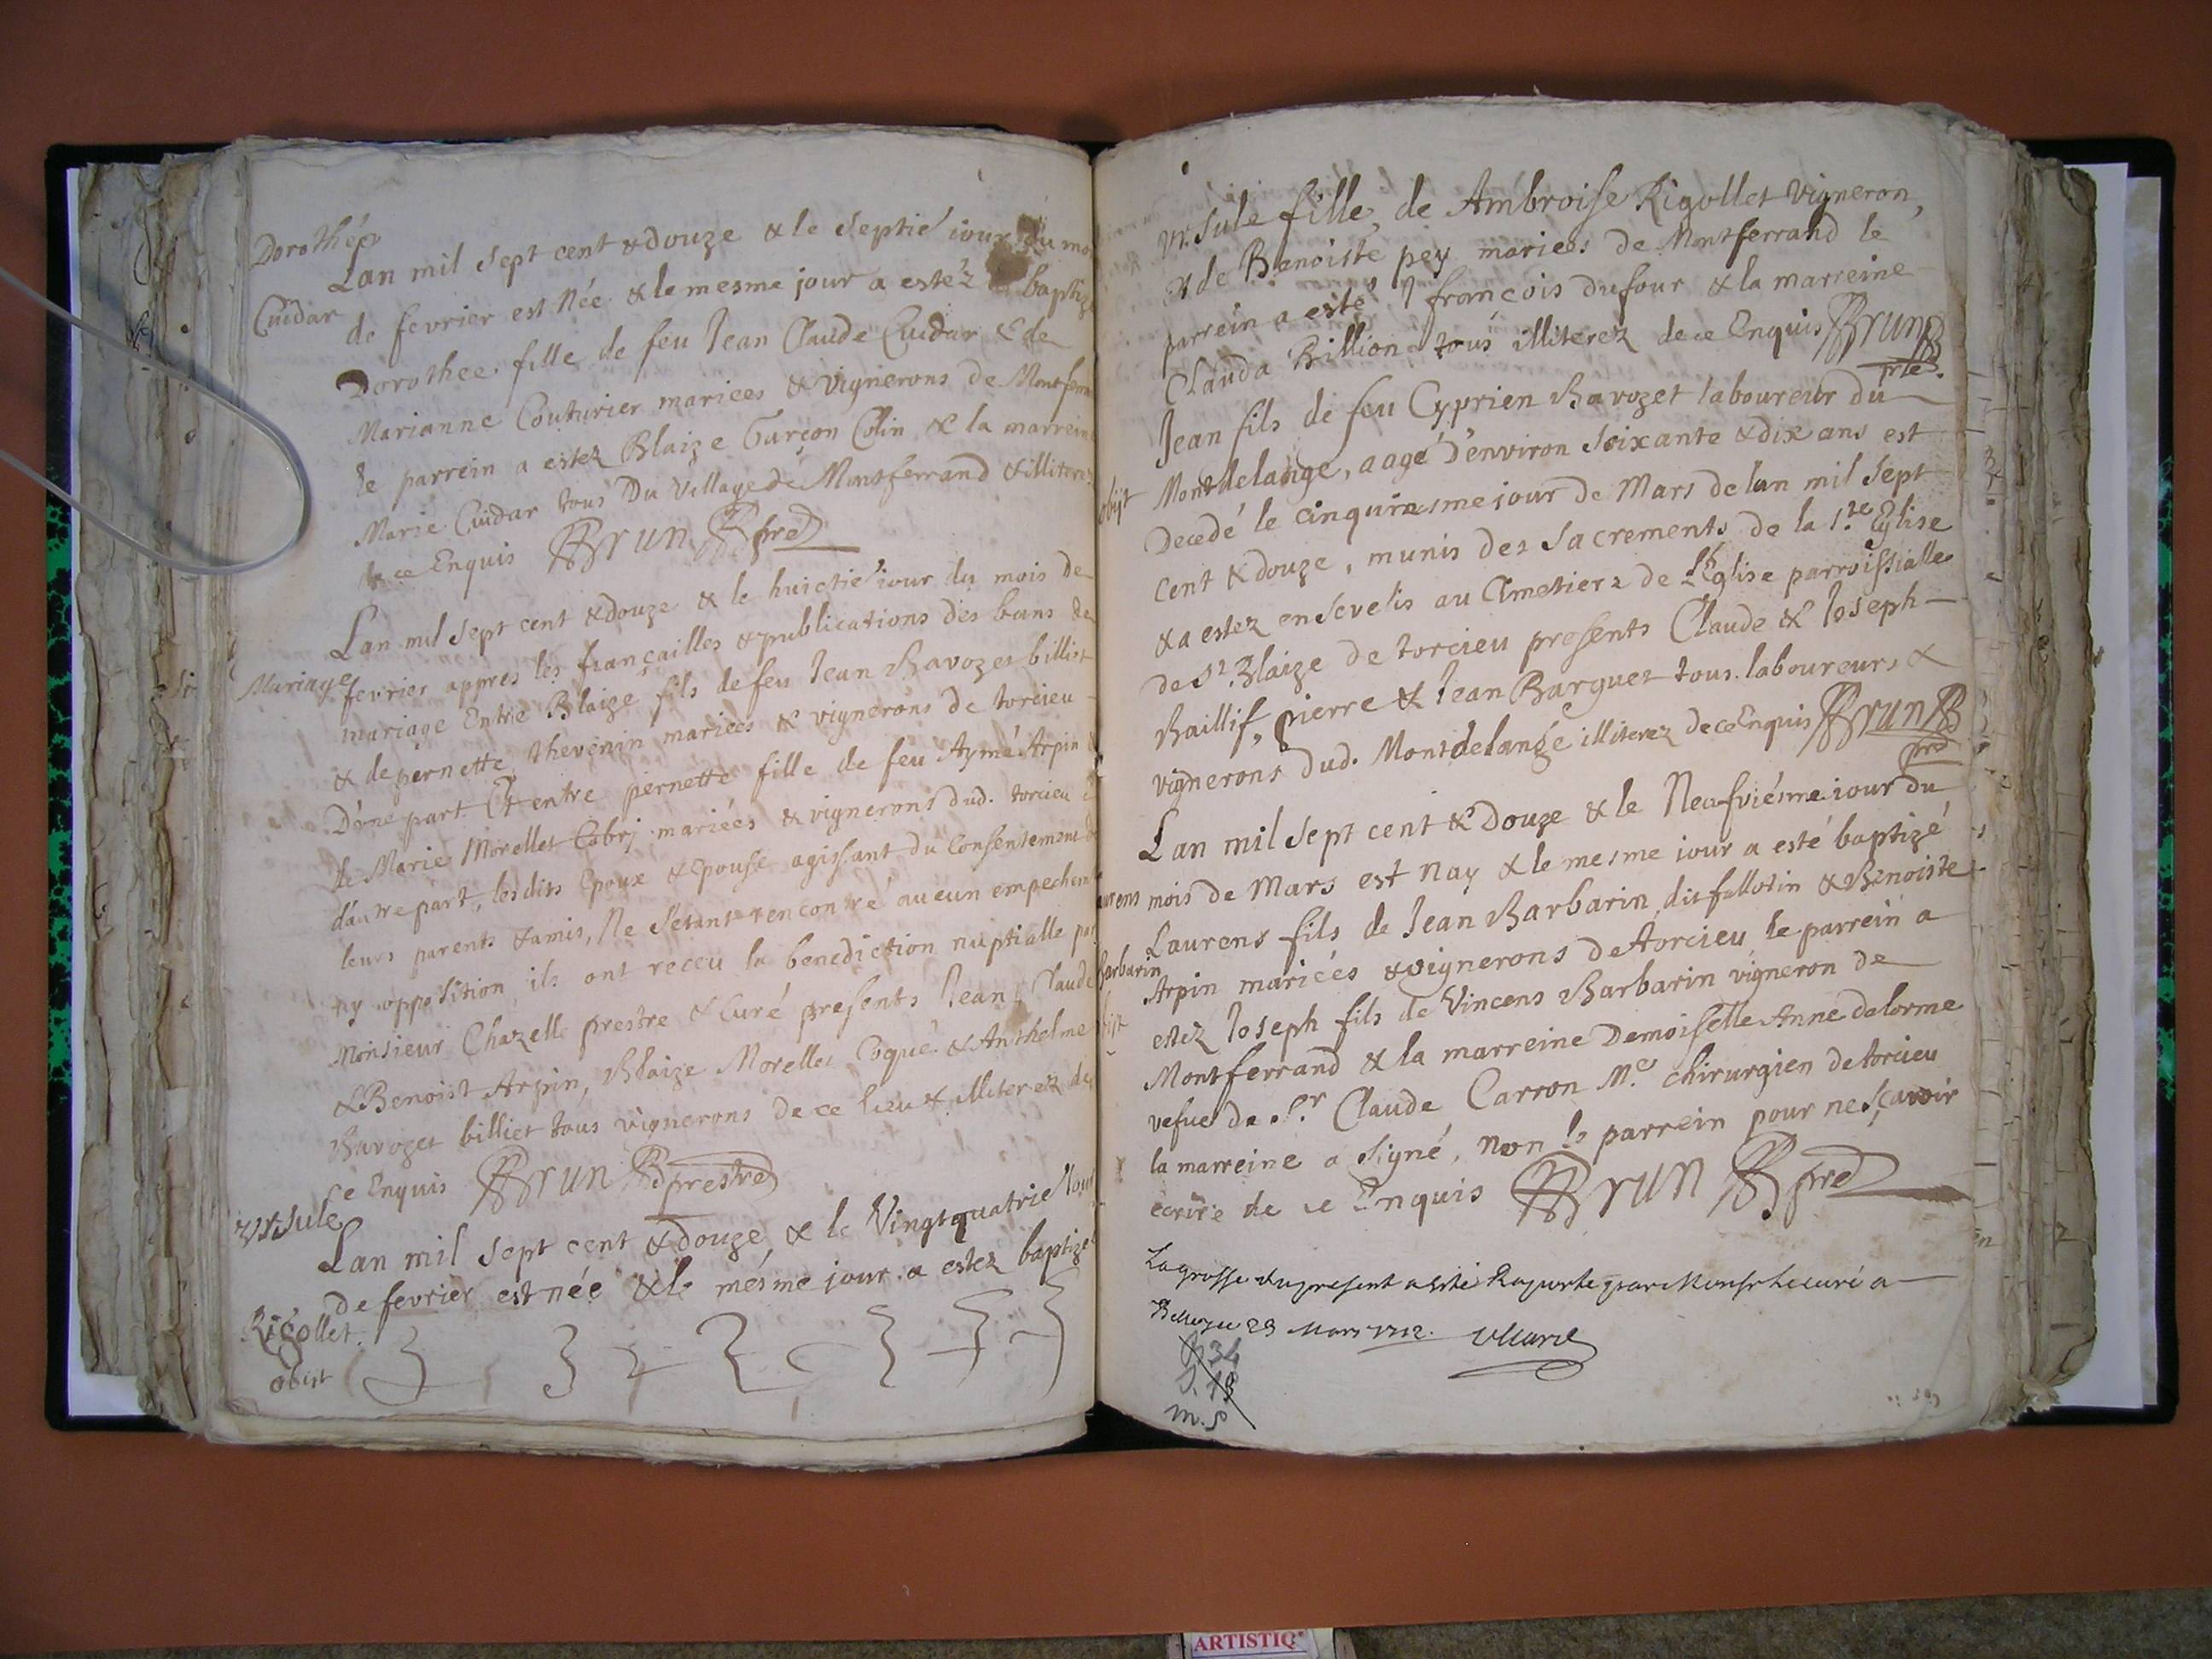 Dorothée
Cuidar
Lan mil sept cent & douze & le septie' iour du moi
de fevrier est Née & le mesme jour a estéz baptizé
Dorothee fille de feu Jean Claude Cuidar & de
Marianne Couturier mariees & vignerons de Montferra
le parrein a estez Blaize Gurçon Colin & la marreine
Marie Cuidar tous Du Village de Montferrand & illiterez
de ce Enquis Brun pre
Mariage
Lan mil sept cent & douze & le huictie' iour du mois de
fevrier appres les françailles & publications des bans de
mariage Entre Blaize fils de feu Jean Bavozet billiet
& de pernette thevenin mariees & vignerons de torcieu
D'une part. Et entre pernette fille de feu Aymé Arpin &
de Marie Morellet Cobrj mariées & vignerons dud. torcieu
d'autre part, lesdits Epoux & Epouse agissant du Consentement de
leurs parents & amis, Ne setant rencontré aucun empechem
ny opposition, ils ont receu la benediction nuptialle par
Monsieur Chazelle prestre & Curé presents Jean, Claude
& Benoist Arpin, Blaize Morellet Coque & Anthelme
Bavozet billiet tous vignerons de ce lieu & illiterez de
ce Enquis Brun prestre
Ursule
Rigollet.
obist
Lan mil sept cent & douze, & le Vingtquatrie' iour
de fevrier est née & le mésme jour a estez baptizé
Ursule fille, de Ambroise Rigollet vigneron,
& de Benoiste pey mariees de Montferrand le
parrein a esté françois dufour & la marreine
Clauda Billion tous illiterez de ce Enquis Brun
pre.
obijt
Jean fils de feu Cyprien Bavozet laboureur du
Montdelange, aagé d'environ soixante & dix ans est
Decedé le cinquiesme jour de Mars de lan mil sept
cent & douze, munis des sacrements de la s.te Eglise
& a estez ensevelis au Cimetiere de l'Eglise parroissialle
de St. Blaize de torcieu presents Claude & Joseph
Baillif, pierre & Jean Barguet tous laboureurs &
vignerons dud. Montdelange illiterez de ce Enquis Brun
pre
aurens
Barbarin
bist
Lan mil sept cent & Douze & le Neufviésme iour du
mois de Mars est nay & le mesme iour a esté baptizé
Laurens fils de Jean Barbarin dit follotin & Benoiste
Arpin mariées & vignerons de torcieu, le parrein a
estéz Joseph fils de Vincens Barbarin vigneron de
Montferrand & la marreine Demoiselle Anne delorme
vefue de Sr. Claude Carron Me. chirurgien de torcieu
la marreine a signé, Non le parrein pour ne sçavoir
ecrire de ce Enquis Brun pre
La grosse du present a esté Raporté par Monsr le curé a
Belley le 23 Mars 1712.
34
m. s
ARTISTIQ